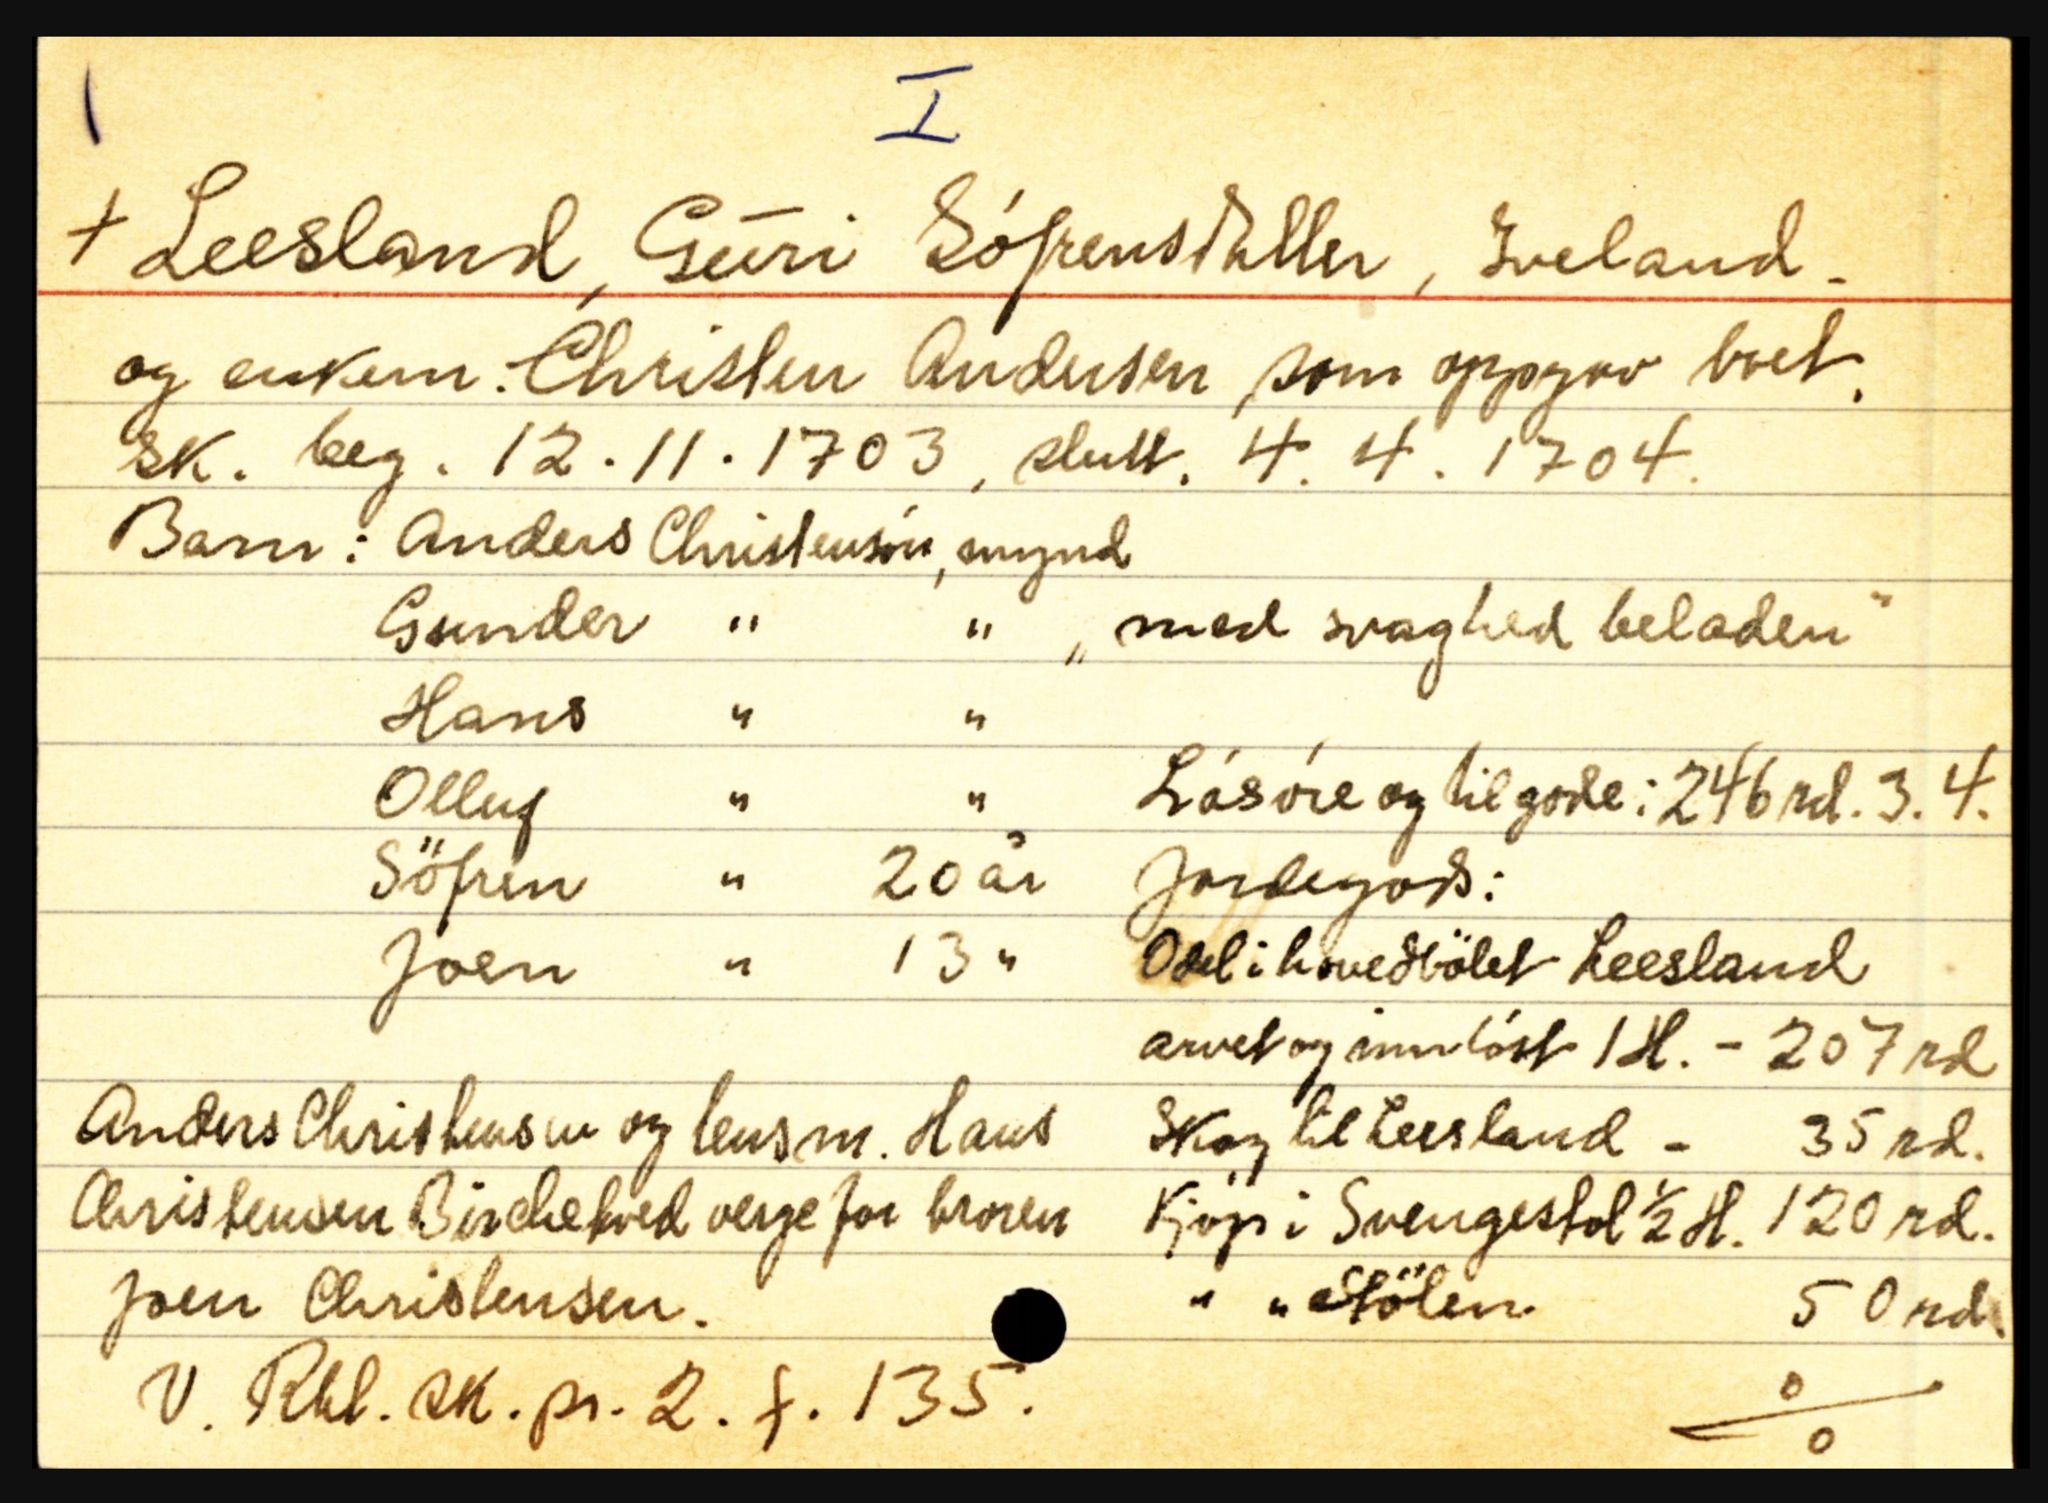 I
+ Leesland, Guri Sófrensdatter, Iveland -
og enkem. Christen Andersen, som oppgav boet.
Sk. beg. 12.11.1703, slutt. 4.4.1704.
Barn: Anders Christensøn, mynd
Gunder " " „med svaghed beladen"
Hans " "
Olluf " "
Söfren " 20 år
Joen " 13 "
Lósóre og tilgode: 246 rd. 3. 4.
Jordegods:
Odel i hovedbölet Leesland
arvet og innlóst 1 H. - 207 rd
Skog til Leesland - 35 rd.
Kjöp i Svengestol ½ H. 120 rd.
" " Stölen 50 rd.
Anders Christensen og lensm. Hans
Christensen Birchetved verge for broren
Joen Christensen.
V. Rbl. sk. pr. 2. f. 135.
o/o